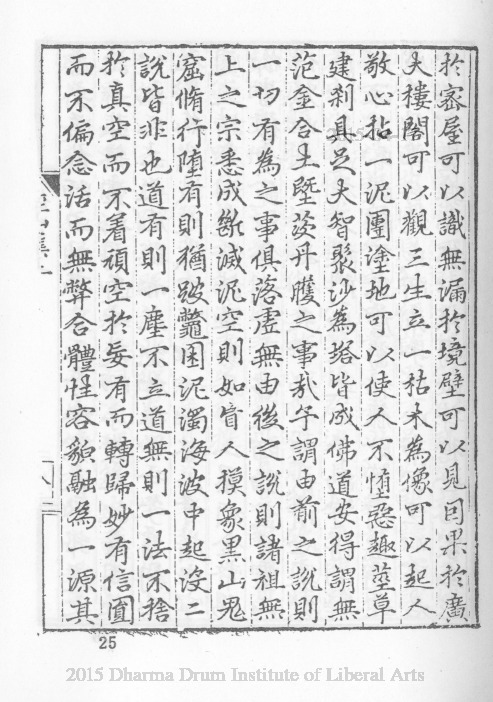 於宻屋可以識無漏於境壁可以見因果於廣
大樓閣可以觀三生立一枯木為像可以起人
敬心拈一泥團塗地可以使人不堕惡趣莖草
建刹具足大智聚沙為塔皆成佛道安得謂無
范金合土墍茨丹雘之事哉謂由前之說則
一切有為之事俱落虛無由後之說則諸祖無
上之宗悉成斷滅泥空則如盲人摸象黑山鬼
窟脩行堕有則猶跛鼈困泥濁海波中起沒二
說皆非也道有則一塵不立道無則一法不捨
於真空而不着頑空於妄有而轉歸妙有信圓
而不偏念活而無弊合體性容貌融為一源其
25
2015 Dharma Drum Institute of Liberal Arts